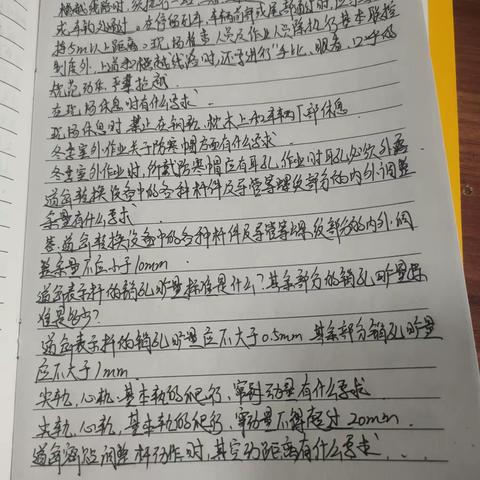 横越线路时,须执行"一站、二看、三
或车钩处通过。在停留列车、车辆前部或尾部越过时,应与
持5m以上距离。现场检查人员及作业人员除执行基本联控
制度外,上道和横越线路时,还要进行"手比、眼看、口呼
规范动作,严禁抢越
在现场休息时有什么要求
现场休息时禁止在钢轨、枕木上和车辆下部休息
冬季室外作业关于防寒帽方面有什么要求
冬季室外作业时,所戴防寒帽应有耳孔,作业时耳孔必须外露
道岔转换设备中的各种杆件及导管等螺纹部分的内外调整
余量有什么要求
答:道岔转换设备中的各种杆件及导管等螺纹部分的内外调
整余量不应小于10mm
道岔表示杆的销孔旷量标准是什么?其余部分的销孔旷量标
准是多少?
道岔表示杆的销孔旷量应不大于0.5mm 其余部分销孔旷量
应不大于1mm
尖轨、心轨、基本轨的爬行、窜动量有什么要求
尖轨、心轨、基本轨的爬行、窜动量不得超过20mm
道岔密贴调整杆动作时,其空动距离有什么要求